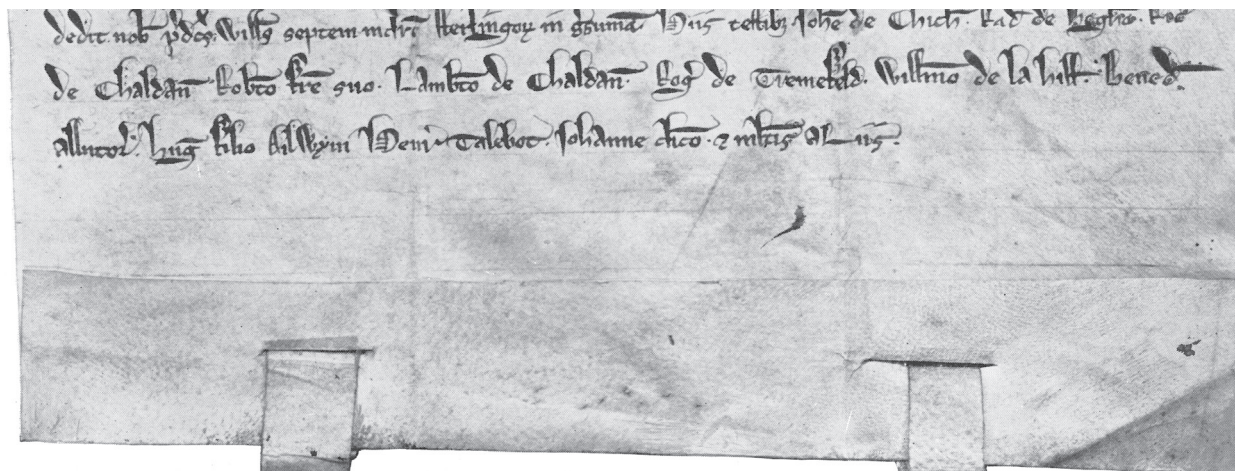 dedit nob p̄dcs Wills septem mrc̄ sterlingoꝝ in g̃sumā. Hiis testibꝫ Joh̃e de Chich̃. Rad̃ de
de Chaldan̄. Rob̃to fr̃e suo. Lamb̃to de Chaldan̄. Rog̃ de Tremefeld. Will̃mo de la hill̃. Bened̃.
Hug̃ filio Ailwyin Henr̃ Talebot. Johanne cl̃ico. ⁊ ml̃tis Aliis.